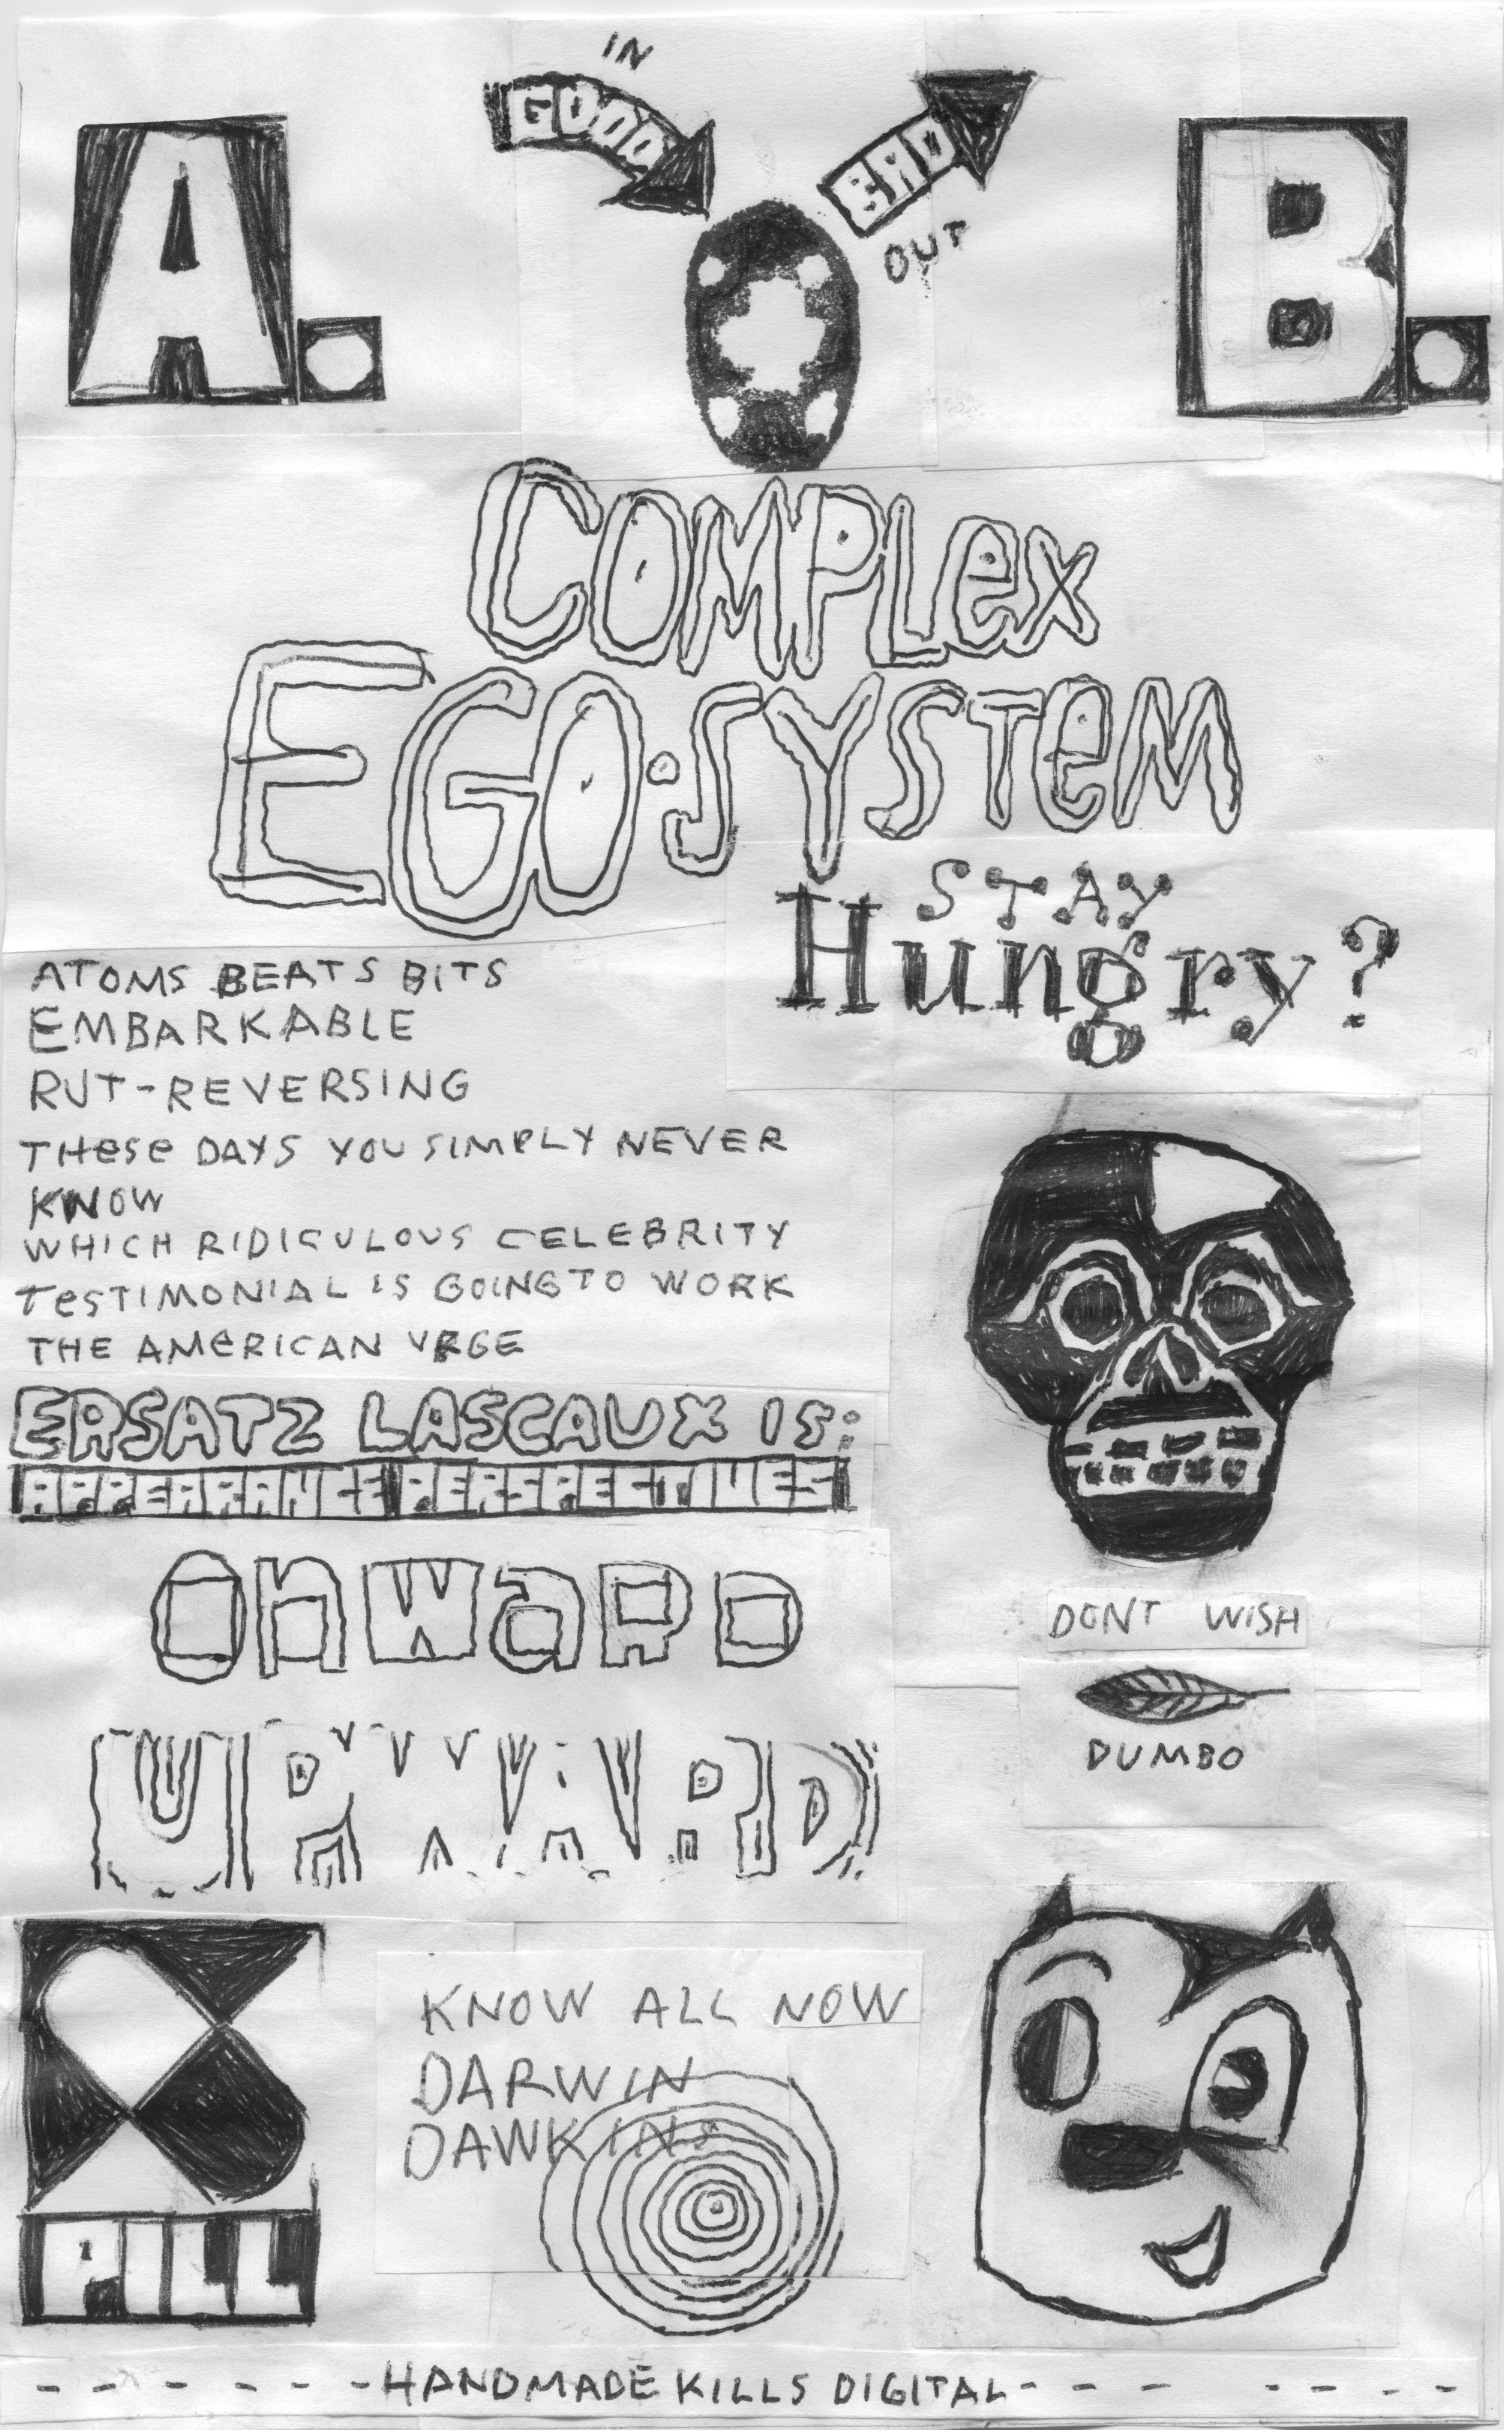 IN
GOOD
BAD
OUT
A.
B.
COMPLex
EGO.SYSTeM
STAY
Hungry?
ATOMS BEATS BITS
EMBARKABLE
RUT-REVERSING
THeSe DAYS YOU SIMPLY NEVER
KNOW
WHICH RIDICULOUS CELEBRITY
TeSTIMONIAL IS GOING TO WORK
THE AMeRICAN URGE
ERSATZ LASCAUX IS:
APPEARANCE PERSPECTIVES
OnWaRD
UPWARD
DONT WISH
DUMBO
KNOW ALL NOW
DARWIN
DAWKINS
PILL
- - - - - - -HANDMADE KILLS DIGITAL- - - - - - - -